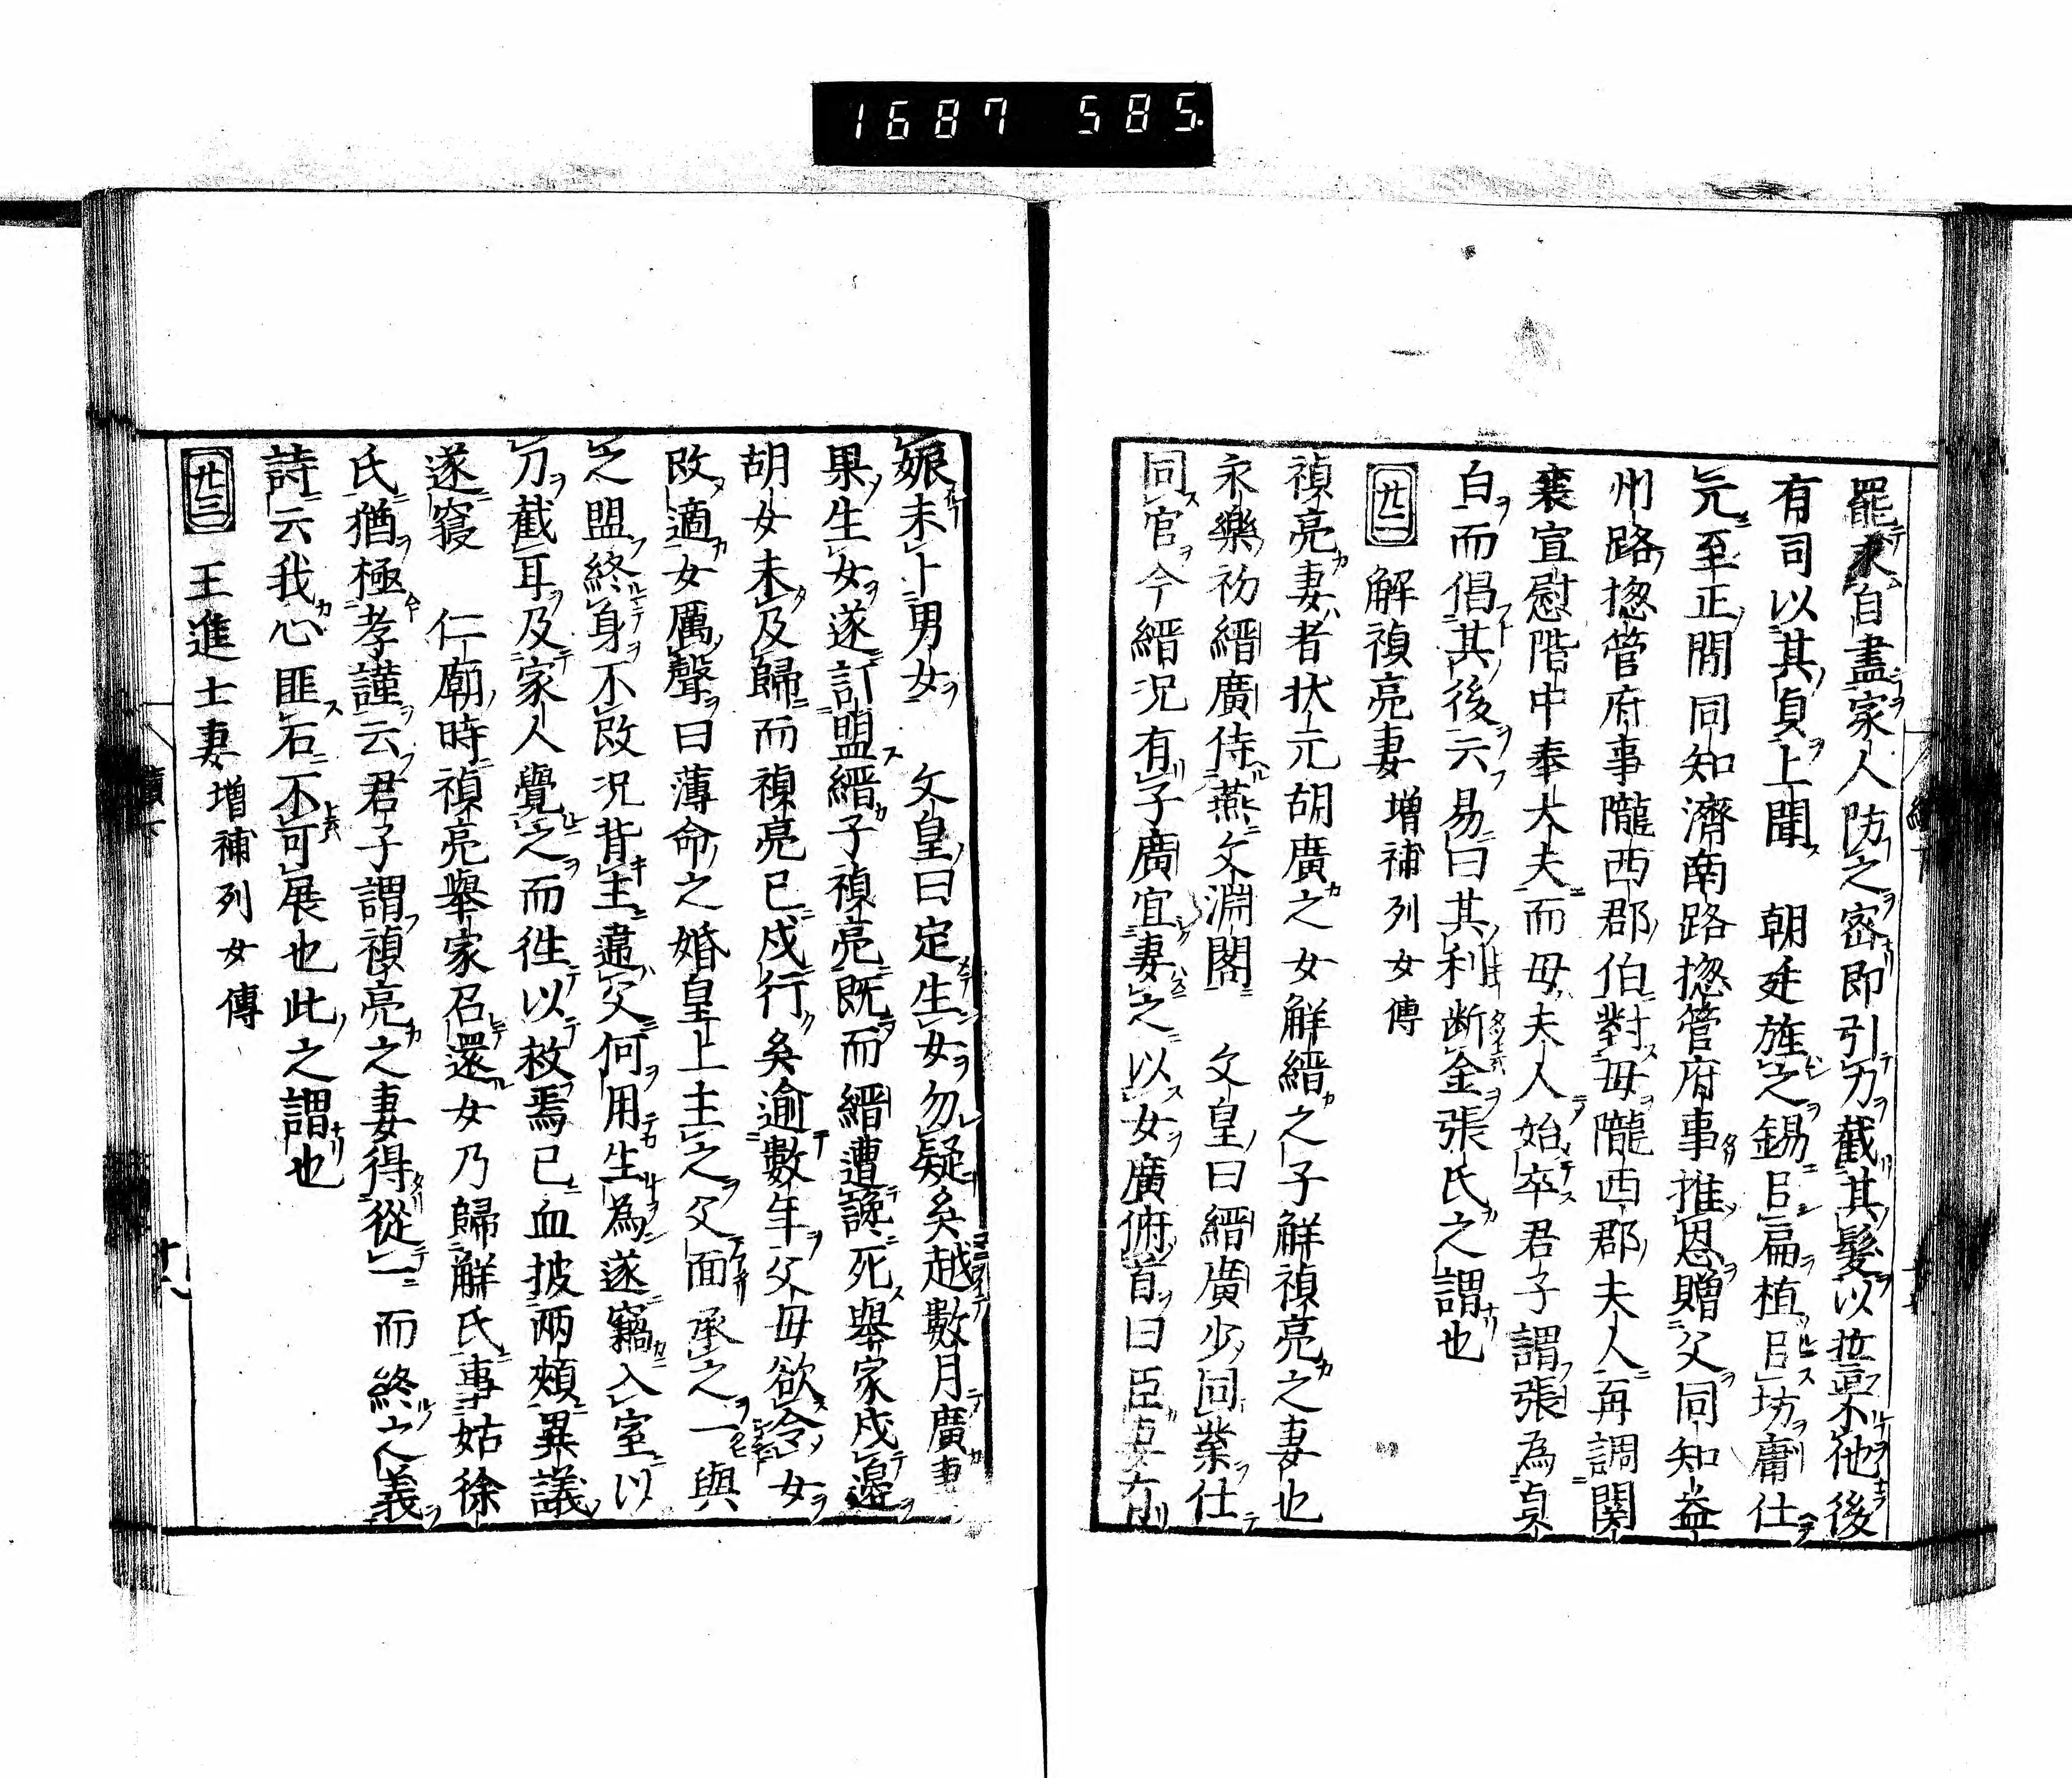 1687 585.
罷求自盡家人防之密即引刀截其髮以誓不他後
有司以其貞上聞 朝廷旌之錫扁植坊庸仕
元至正間同知濟南路揔管府事推恩贈父同知益
州路揔管府事隴西郡伯對母隴西郡夫人再調関
襄宣慰階中奉大夫而母夫人始卒君子謂張為貞
白而倡其後云易曰其利断金張氏之謂也
廿二 解禎亮妻 増補列女傳
禎亮妻者状元胡廣之女解縉之子解禎亮之妻也
永樂初縉廣侍燕文淵閣 文皇曰縉廣少同業仕
同官今縉况有子廣宜妻之以女廣俯首曰臣妻有
娠未卜男女 文皇曰定生女勿疑矣越數月廣妻
果生女遂訂盟縉子禎亮既而縉遭讒死舉家戍邉
胡女未及歸而禎亮已戍行矣逾數年父母欲令女
改適女厲聲曰薄命之婚皇上主之父面承之一與
之盟終身不改况背主違父何用生為遂竊入室以
刀截耳及家人覺之而徃以救焉已血披兩頰異議
遂寢 仁廟時禎亮舉家召還女乃歸解氏事姑徐
氏猶極孝謹云君子謂禎亮之妻得從一而終之義
詩云我心匪石不可展也此之謂也
廿三 王進士妻 増補列女傳